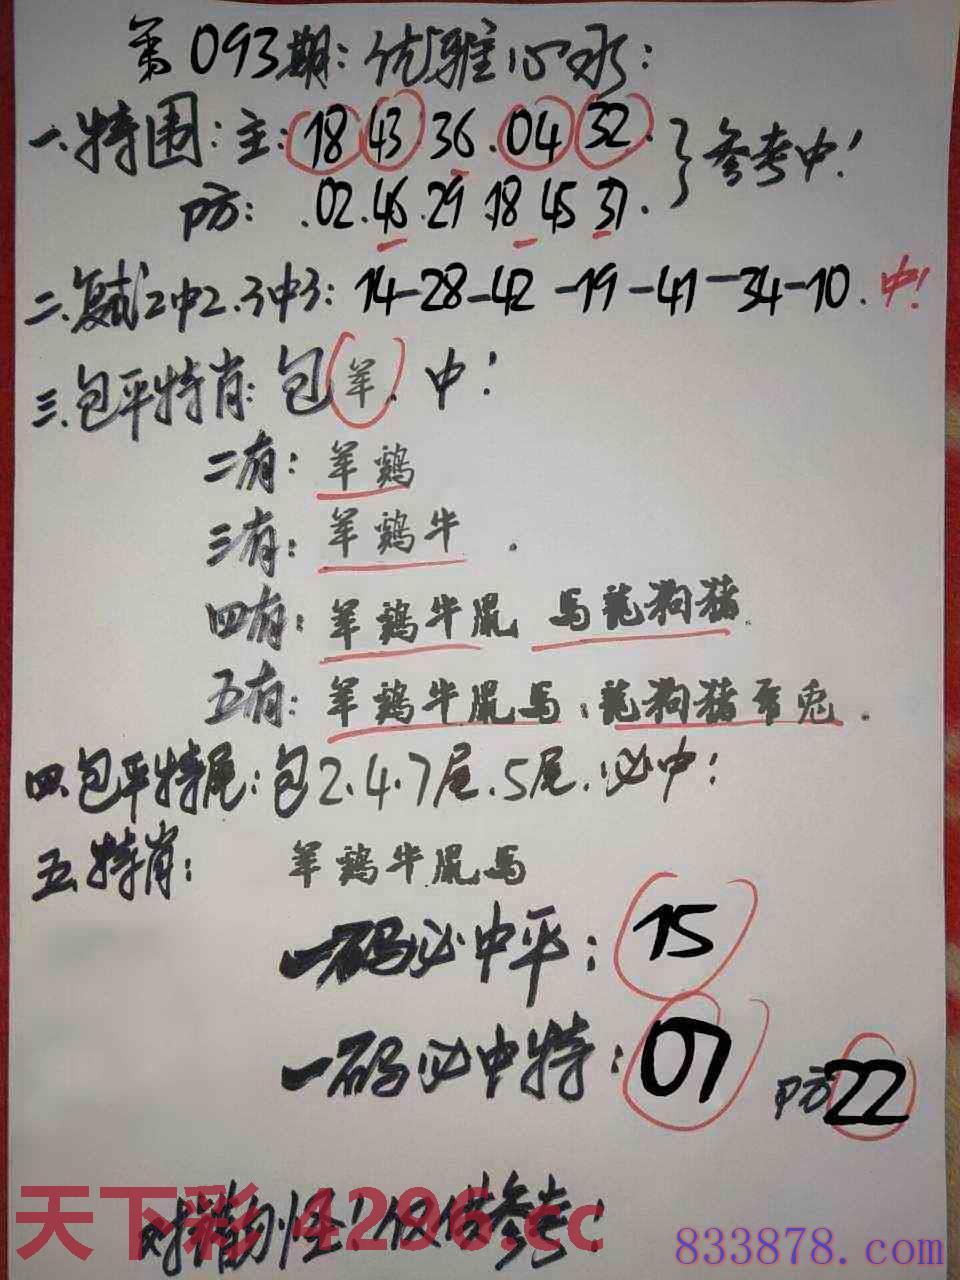 第093期:优雅心水:
一.特围:主:18 43 36.04 32.
防: .02.46.29 18 45 31.
参考中!
二.复式2中2.3中3: 14-28-42-19-41-34-10.中!
三.包平特肖:包羊.中!
二有:羊鸡
三有:羊鸡牛.
四有:羊鸡牛鼠 馬龍狗猪.
五有:羊鸡牛鼠馬:龍狗猪 兎.
四.包平特尾:包2.4.7尾.5尾.必中!
五.特肖: 羊鸡牛鼠馬
一码必中平: 15
一码必中特: 07 防22
对错勿怪!仅供参考!
天下彩 4296.cc
833878.com